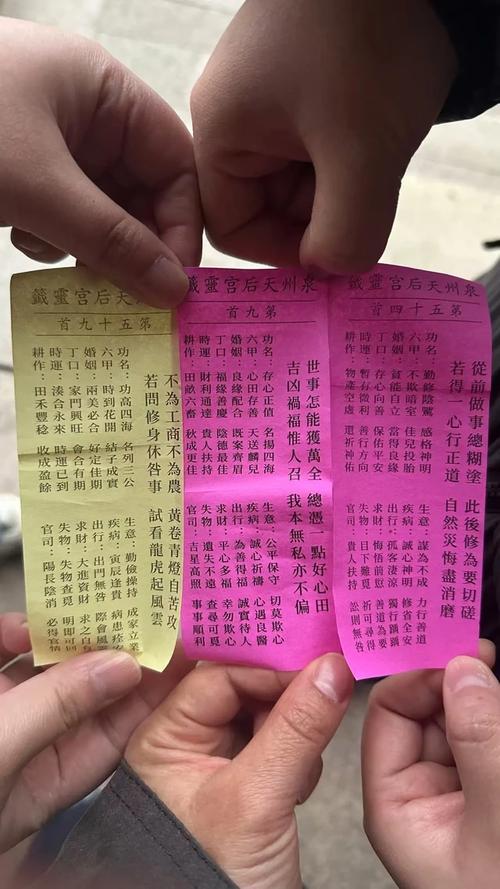 泉州天后宮靈籤
第五十四首
從前做事總糊塗 此後修為要切磋
若得一心行正道 自然災悔盡消磨
功名：勤修陰騭 感格神明
六甲：不欺暗室 佳兒投胎
婚姻：貧能自立 當得良緣
丁口：存心向善 保佑平安
時運：暫存微利 善行方向
耕作：物產空虛 還祈神佑
生意：謀為不成 力行善道
疾病：誠心神明 修省全安
出行：孤客淒涼 獨行踽踽
求財：悔悟前愆 善道為要
失物：目下難覓 祈可尋得
官司：貴人扶持 訟則無咎
泉州天后宮靈籤
第九首
世事怎能獲萬全 總憑一點好心田
吉凶禍福惟人召 我本無私亦不偏
功名：存心正值 名揚四海
六甲：心田存善 天送麟兒
婚姻：福緣配合 既案齊眉
丁口：福緣善慶 陰德最佳
時運：財利通達 貴人扶持
耕作：田畝六畜 秋成更佳
生意：公平保守 切莫欺心
疾病：誠心祈禱 心遇良醫
出行：為善得福 誠實待人
求財：平心多福 幸勿欺心
失物：遺失不遠 查尋可覓
官司：吉星高照 事事順利
天后宮靈籤
第五十九首
不為工商不為農 黃卷青燈自苦攻
若問修身休咎事 試看龍虎起風雲
功名：功高四海 名列三公
六甲：時到花開 結子成實
婚姻：兩美必合 好定佳期
丁口：家門興旺 會合有期
時運：湊合永來 時運已到
耕作：田禾豐稔 收成盈餘
生意：勤儉操持 成家立業
疾病：寅辰逢貴 病患痊安
出行：出門無咎 際會風
求財：大進資財 求之自
失物：失物查覓 明即可
官司：陽長陰消 必得